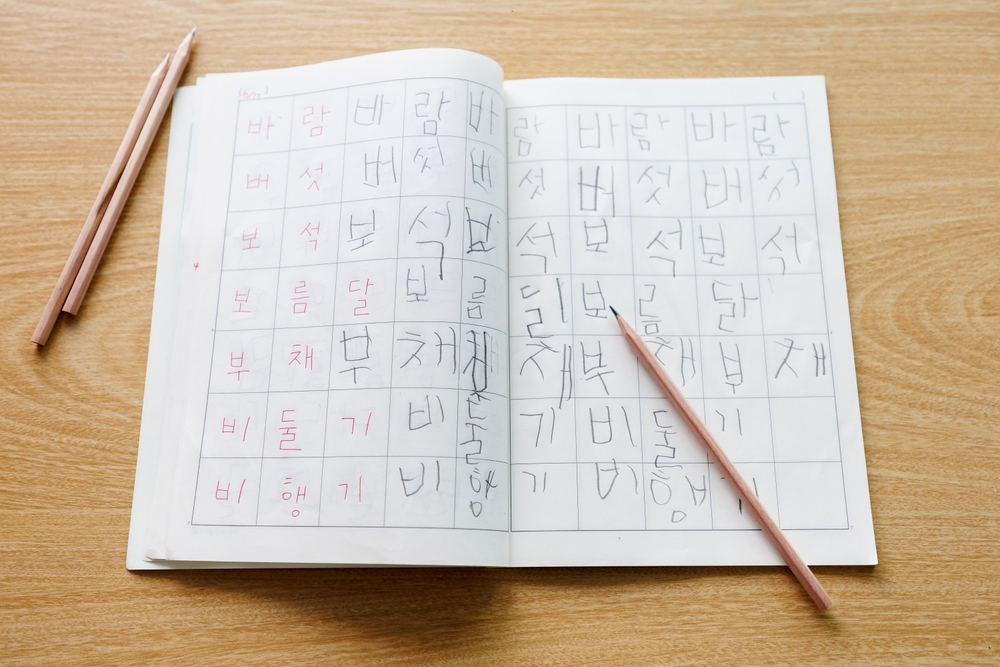 바 람 바 람 바
버 섯 버 섯 버
보 석 보 석 보
보 름 달 보 름
부 채 부 채
비 둘 기 비 둘
비 행 기 비 행
람 바 람 바 람
섯 버 섯 버 섯
석 보 석 보 석
달 보 름 달
채 부 채 부 채
기 비 둘 기
기 비 행 기